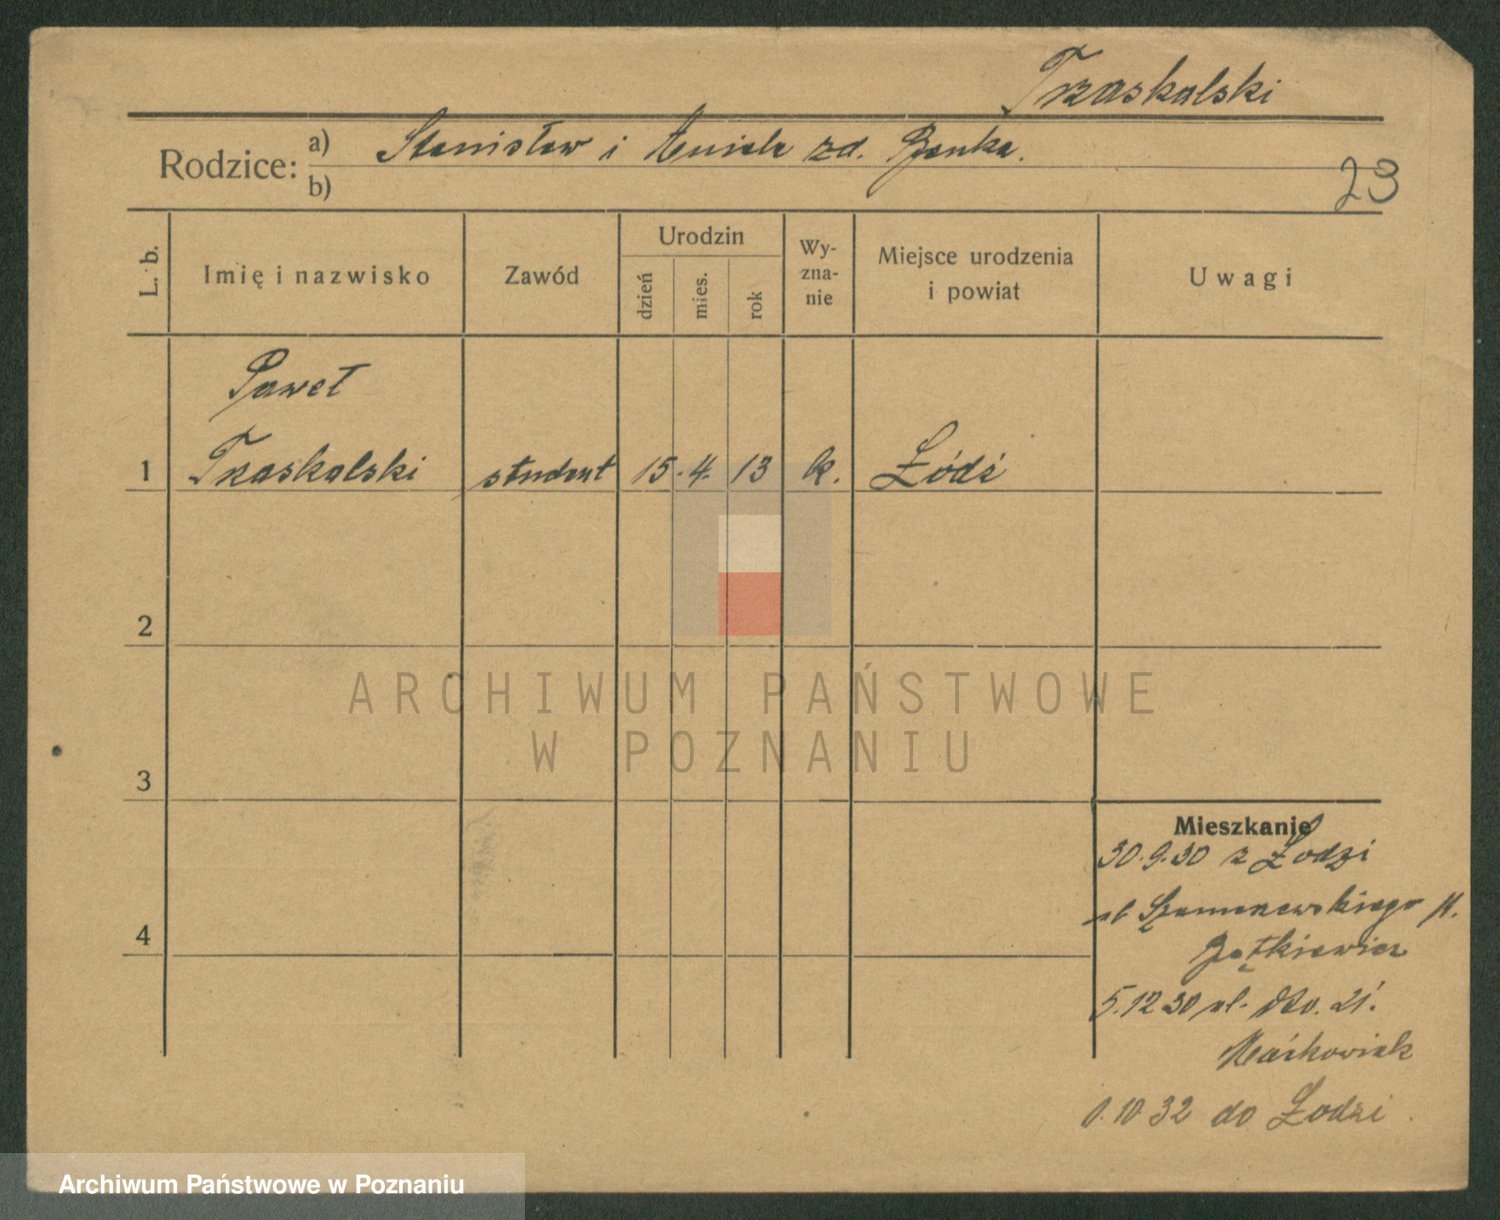 Trzaskalski
Rodzice:
a) Stanisław i Aniela zd. Benka.
b)
23
L. b.
Imię i nazwisko
Zawód
Urodzin
dzień
mies.
rok
Wy-
zna-
nie
Miejsce urodzenia
i powiat
Uwagi
Paweł
1 Trzaskalski student 15. 4. 13 k. Łódź
2
3
4
ARCHIWUM PAŃSTWOWE
W POZNANIU
Mieszkanie
30.9.30 z Łodzi
ul
5.12 30 ul. dto. 21.
Maćkowiak
1.10 32 do Łodzi
Archiwum Państwowe w Poznaniu